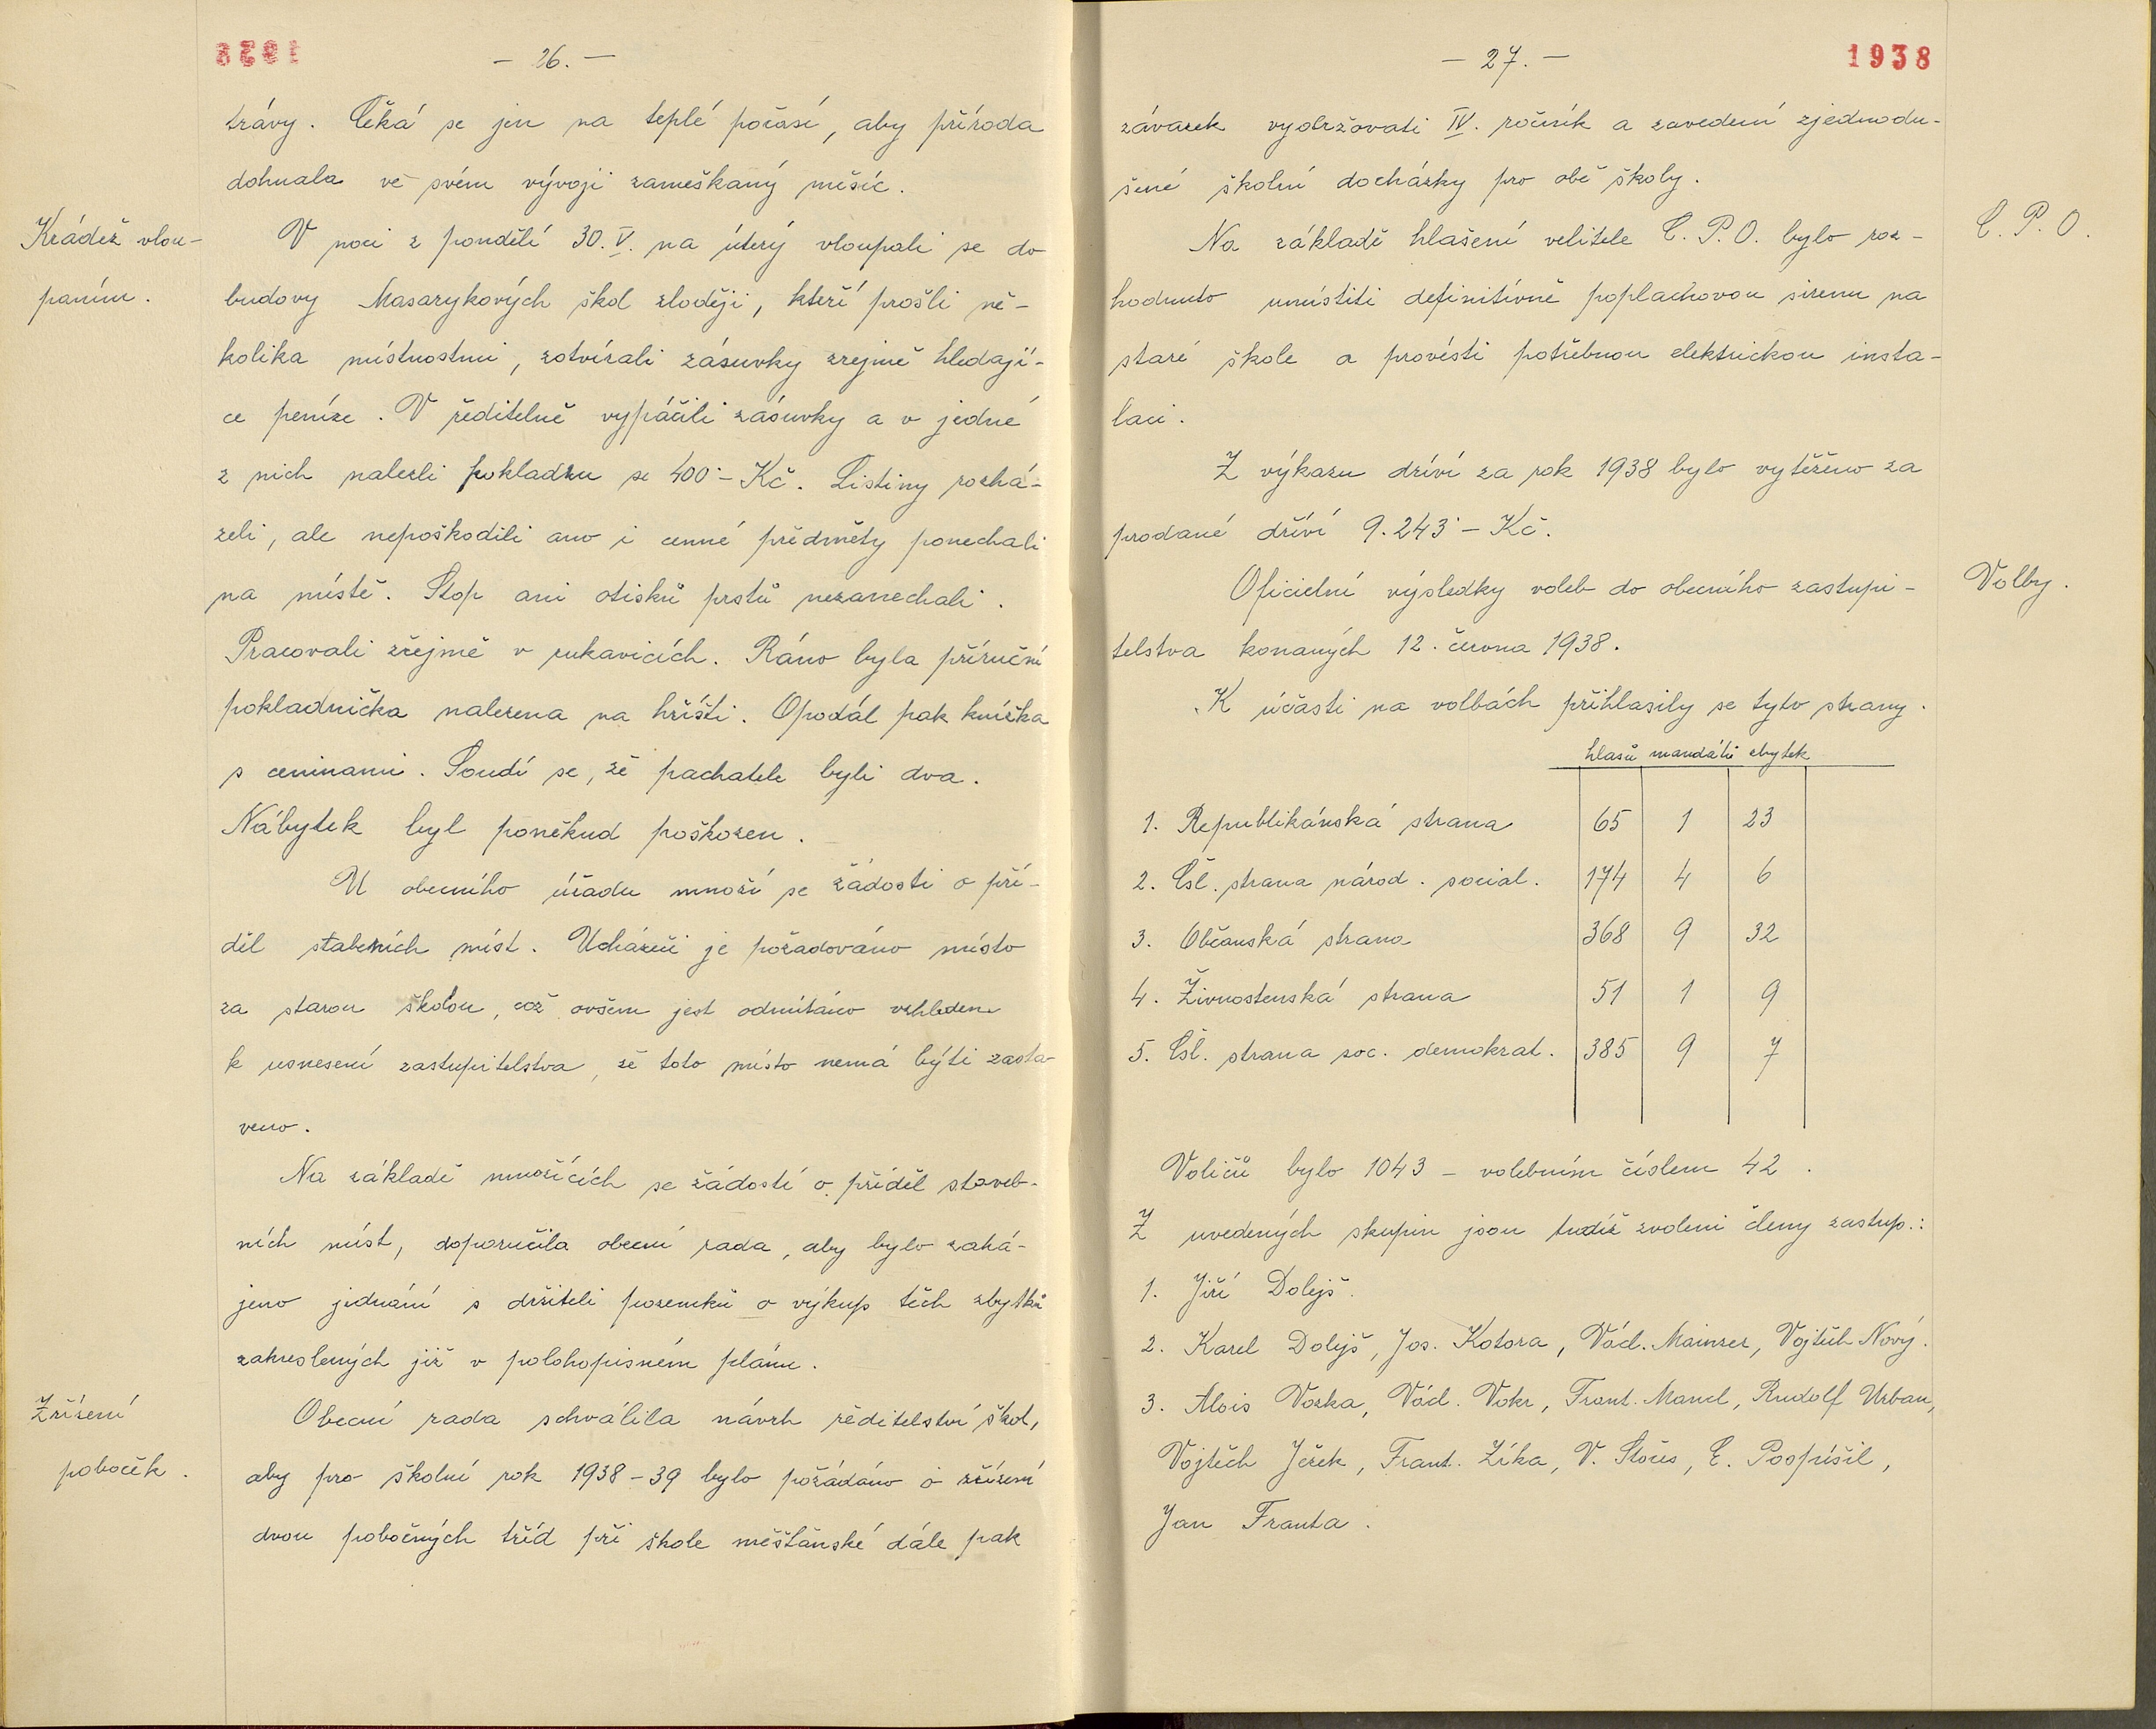 1938
- 26. -
trávy. Čeká se jen na teplé počasí, aby příroda
dohnala ve svém vývoji zameškaný měsíc.
Krádež vlou-
paním.
V noci z pondělí 30. V. na úterý vloupali se do
budovy Masarykových škol zloději, kteří prošli ně-
kolika místnostmi, zotvírali zásuvky zrejmě hledají-
ce peníze. V ředitelně vypáčili zásuvky a v jedné
z nich nalezli pokladnu se 400·- Kč. Listiny rozhá-
zeli, ale nepoškodili ano i cenné předměty ponechali
na místě. Stop ani otisků prstů nezanechali.
Pracovali zřejmě v rukavicích. Ráno byla příruční
pokladnička nalezena na hřišti. Opodál pak knížka
s ceninami. Soudí se, že pachatele byli dva.
Nábytek byl poněkud poškozen.
U obecního úřadu množí se žádosti o pří-
děl stabeních míst. Uchazeči je požadováno místo
za starou školou, což ovšem jest odmítáno vzhledem
k usnesení zastupitelstva, že toto místo nemá býti zasta-
veno.
Na základě množících se žádostí o příděl staveb-
ních míst, doporučila obecní rada, aby bylo zahá-
jeno jednání s držiteli pozemků o výkup těch zbytků
zakreslených již v polohopisném plánu.
Zřízení
poboček.
Obecní rada schválila návrh ředitelství škol,
aby pro školní rok 1938-39 bylo požádáno o zřízení
dvou pobočných tříd při škole měšťanské dále pak
- 27. -
1938
závazek vydržovati IV. ročník a zavedení zjednodu-
šené školní docházky pro obě školy.
C. P. O.
Na základě hlašení velitele C. P. O. bylo roz-
hodnuto umístiti definitívně poplachovou sirenu na
staré škole a provésti potřebnou elektrickou insta-
laci.
Z výkazu dříví za rok 1938 bylo vytěženo za
prodané dříví 9.243·- Kč.
Volby.
Oficielní výsledky voleb do obecního zastupi-
telstva konaných 12. června 1938.
K účasti na volbách přihlasily se tyto strany.
hlasů mandátů zbytek
1. Republikánská strana 65 1 23
2. Čsl. strana národ. social. 174 4 6
3. Občanská strana 368 9 32
4. Živnostenská strana 51 1 9
5. Čsl. strana soc. demokrat. 385 9 7
Voličů bylo 1043 - volebním číslem 42.
Z uvedených skupin jsou tudíž zvoleni členy zastup.:
1. Jiří Dolejš.
2. Karel Dolejš, Jos. Kotora, Václ. Mainzer, Vojtěch Nový.
3. Alois Vozka, Václ. Vokr, Frant. Mancl, Rudolf Urban,
Vojtěch Ježek, Frant. Zíka, V. Štočes, E. Pospíšil,
Jan Franta.